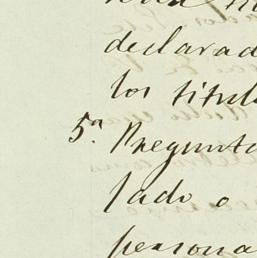 declarad
los titul
5ª. Pregunta
lado o
persona